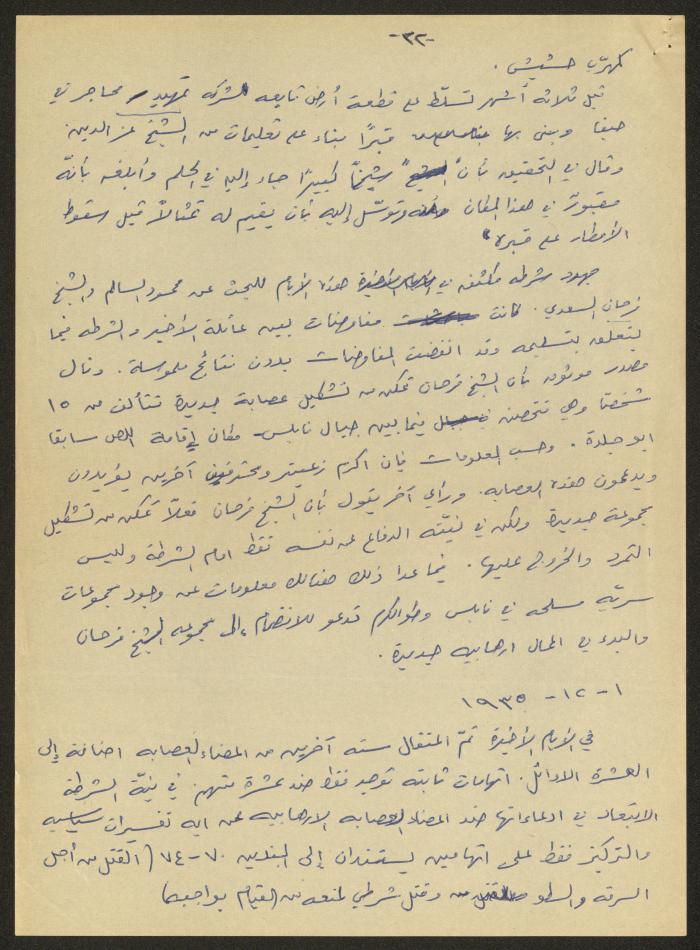 -٣٢-
كمهرّب حشيش.
قبل ثلاثة أشهر تسلّط على قطعة أرض تابعه لشركه تمهيد محاجر في
حيفا وبنى بها قبرًا بناء على تعليمات من الشيخ عز الدين.
وقال في التحقيق بأن "شيخًا كبيرًا جاء إليه في الحلم وأبلغه بأنّه
مقبورٌ في هذا المكان وتوسّل إليه بأن يقيم له تمثالًا قبل سقوط
الأمطار على قبره"
جهود شرطه مكثفه في هذه الأيام للبحث عن محمود السالم والشيخ
فرحان السعدي. كانت مفاوضات بين عائلة الأخير والشرطه فيما
يتعلق بتسليمه وقد انفضت المفاوضات بدون نتائج ملموسة. وقال
مصدر موثوق بأن الشيخ فرحان تمكن من تشكيل عصابة جديدة تتألف من ١٥
شخصًا وهي تتحصن فيما بين جبال نابلس - مكان إقامة اللص سابقا
ابو جلدة. وحسب المعلومات فإن اكرم زعيتر ومحترفين آخرين يؤيدون
ويدعمون هذه العصابه. ورأي آخر يقول بأن الشيخ فرحان فعلًا تمكن من تشكيل
مجموعة جديدة ولكن في نيّته الدفاع عن نفسه فقط امام الشرطة وليس
التمرد والخروج عليها. فيما عدا ذلك هنالك معلومات عن وجود مجموعات
سريّه مسلحه في نابلس وطولكرم تدعو للانضمام الى مجموعه الشيخ فرحان
والبدء في اعمال ارهابيه جديدة.
١-١٢-١٩٣٥
في الأيام الأخيرة تمّ اعتقال سته آخرين من اعضاء العصابه اضافة إلى
العشرة الاوائل. اتهامات ثابته توجد فقط ضد عشرة منهم. في نيّة الشرطة
الابتعاد في ادعاءاتها ضد اعضاء العصابه الارهابيه عن ايه تفسيرات سياسيه
والتركيز فقط على اتهامين يستندان إلى البندين ٧٠-٧٤ (القتل من أجل
السرقه والسطو وقتل شرطي لمنعه من القيام بواجبه)